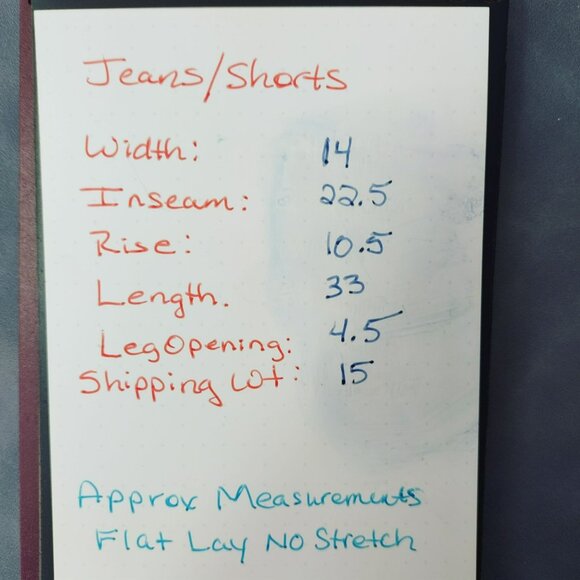 Jeans/Shorts
Width: 14
Inseam: 22.5
Rise: 10.5
Length. 33
Leg Opening: 4.5
Shipping Wt: 15
Approx Measurements
Flat Lay No Stretch